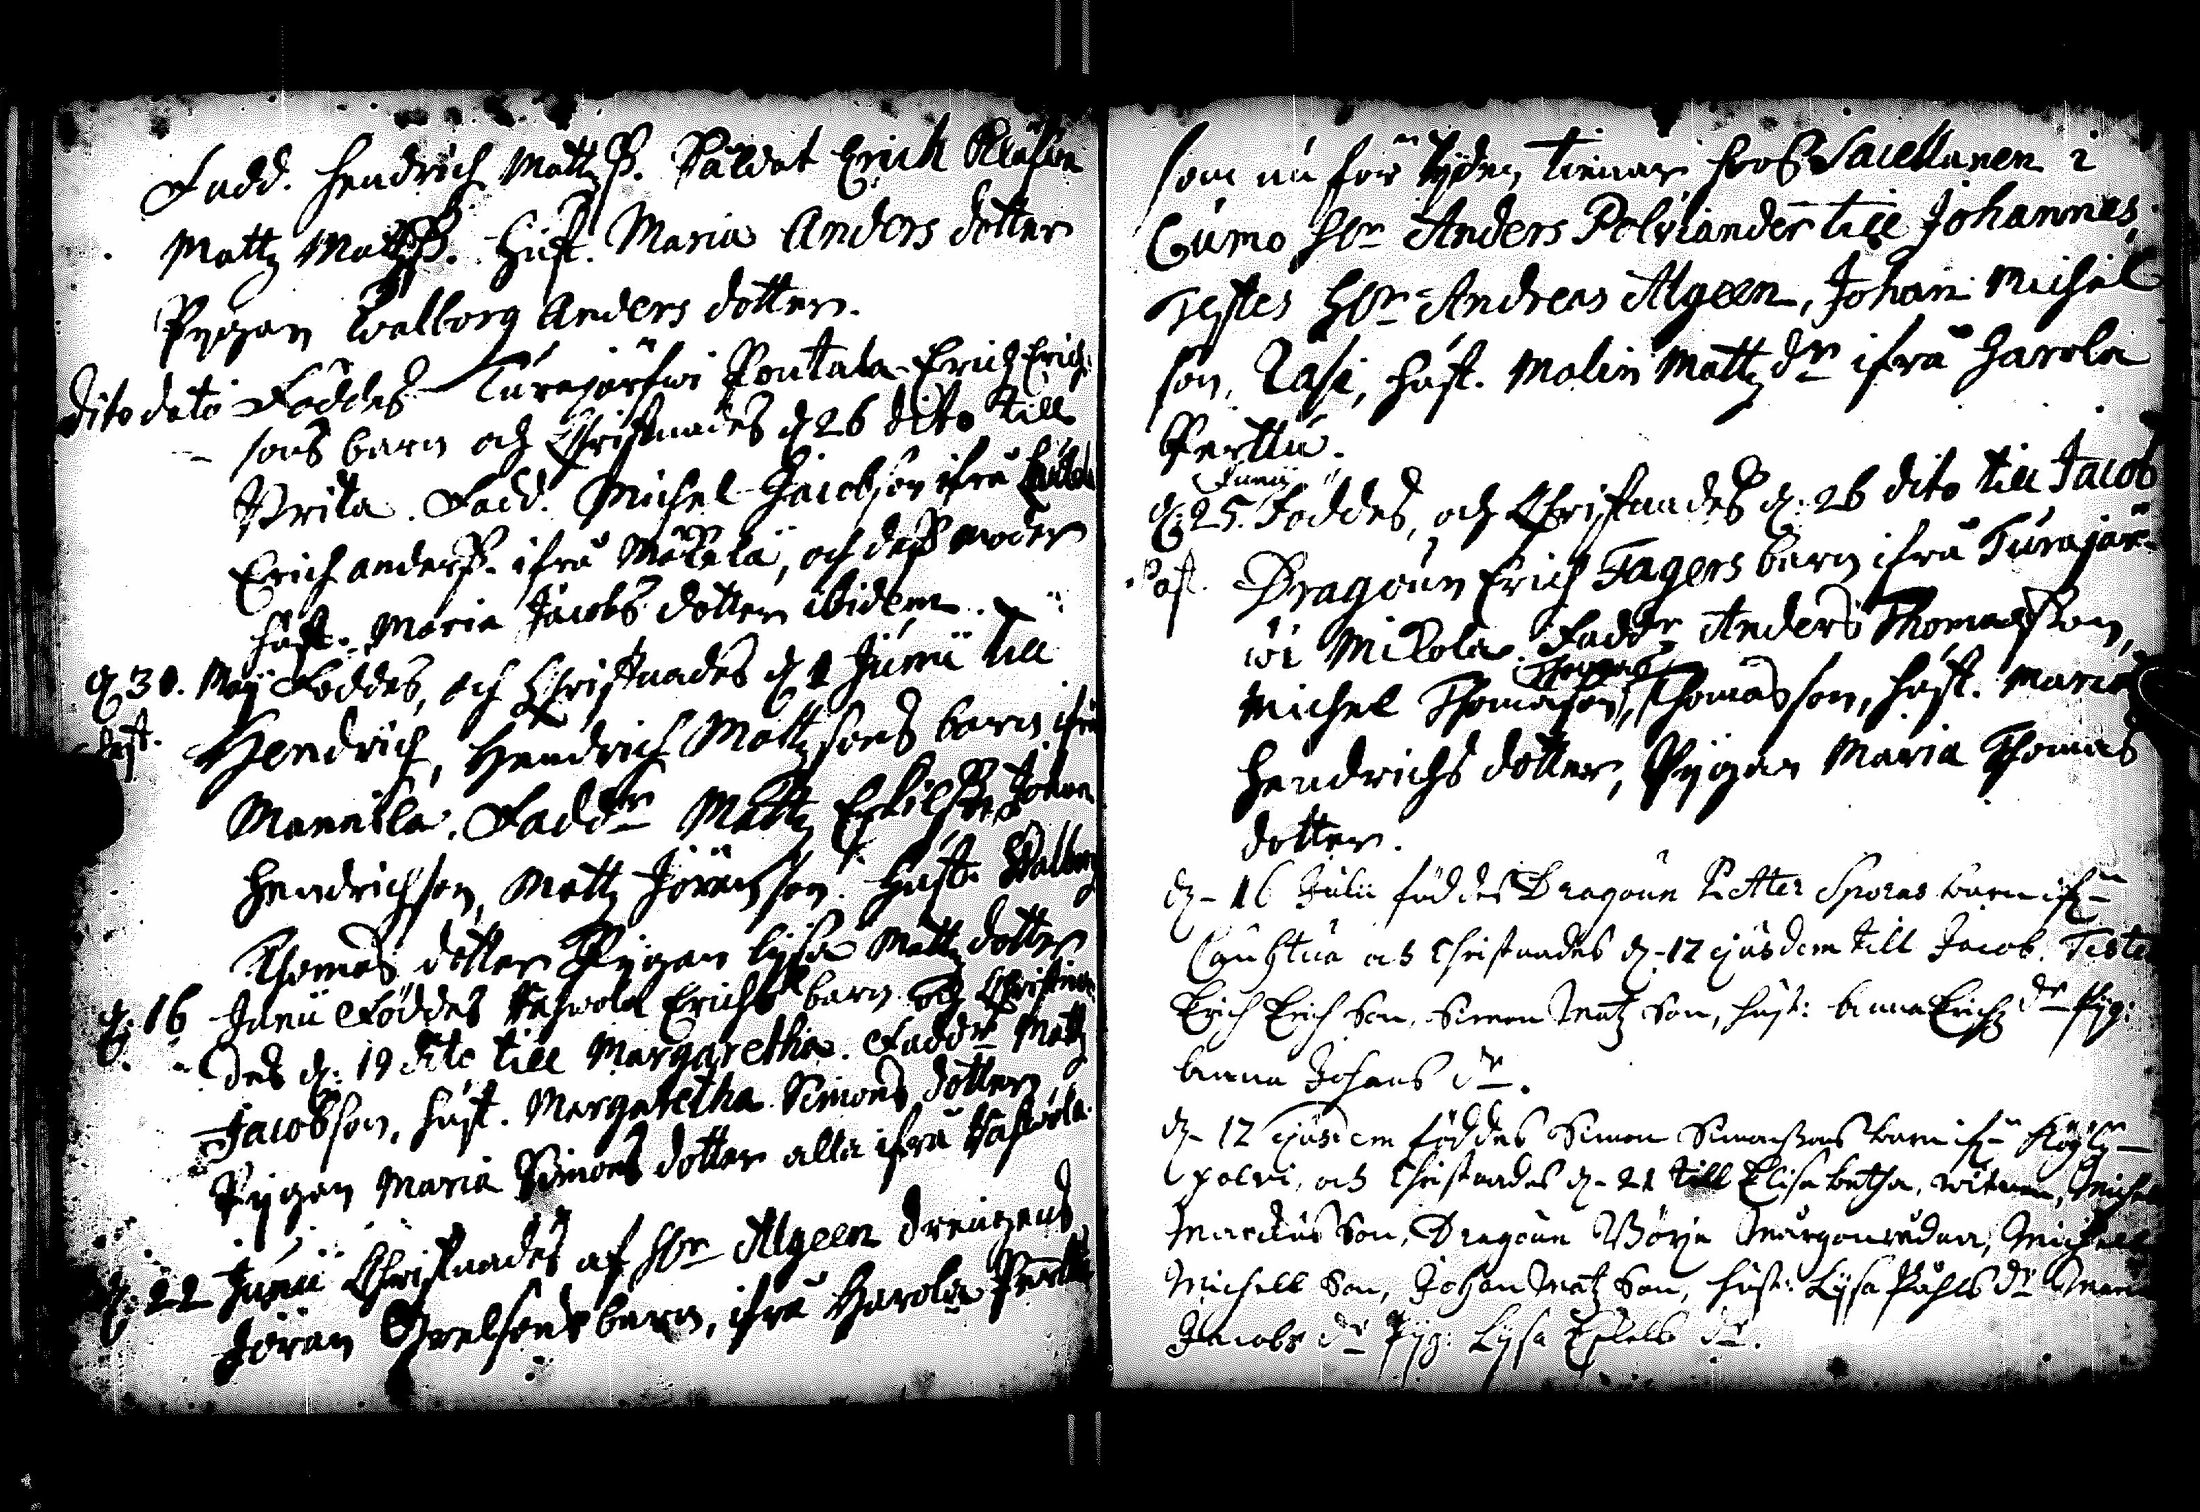 Fadd. Hendrich Mattz ß. Såldat Erich
Mattz Mattz ß. Hust. Maria Anders dotter
Pygan Walborg Anders dotter.
dito dato Föddes Turajärfwi Pontala Erich Erich-
sons barn och Christnades d. 26 dito till
Brita. Fadd. Michel Jacobson ifrå
Erich anderß. ifrå Mäkelä, och deß moder
hust. Maria Jacobs dotter ibidem.
d. 30. Maÿ Föddes, och Christnades d. 1 Junii till
Hendrich, Hendrich Mattzsons barn ifrå
Mannila. Fadd:r Mattz Johan
Hendrichson, Mattz Jöranson. Hust. Walborg
Thomas dotter Pygan Lysa Mattz dotter
d. 16 Junii Föddes Erichs barn och Christna-
des d. 19 dito till Margaretha. Fadd:r Mattz
Jacobson, hust. Margaretha Simons dotter
Pygan Maria Simons dotter alla ifrå
d. 22 Junii Christnades af H:r Algeen drengens
Jöran barn, ifrå Harola Perttu
som nu för tyden tienar hos Sacellanen i
Cumo H:r Anders Polviander till Johannes,
Testes H:r Andreas Algeen, Johan Michel
son, Lasi, hust. Malin Mattz d:r ifrå Harola
Perttu.
Junij
d. 25. Föddes, och Christnades d. 26 dito till Jacob
Dragoun Erich Fagers barn ifrå Turajär-
wi Mikola. Fadd:r Anders Thomasson,
Michel Thomason, Thomasson, hust. Maria
Hendrichs dotter, Pÿgan Maria Thomas
dotter.
d. 16 Julii föddes Dragoun Petter Sporas barn if:n
Cauhtua och Christnades d. 17 ejusdem till Jacob. Testes
Erich Erich Son, Simon Matz Son, hust: Anna Erichz d:r Pyg:
Anna Johans d:r.
d. 17 ejusdem föddes Simon Simonssons barn if:n Köÿliÿ-
polvi, och Christnades d. 21 till Elisabetha, witnen, Michel
Marckus Son, Dragoun Börje Michell
Michell Son, Johan Matz Son, hust: Lysa Påhls d:r Maria
Jacobs d:r Pyg: Lysa d:r.